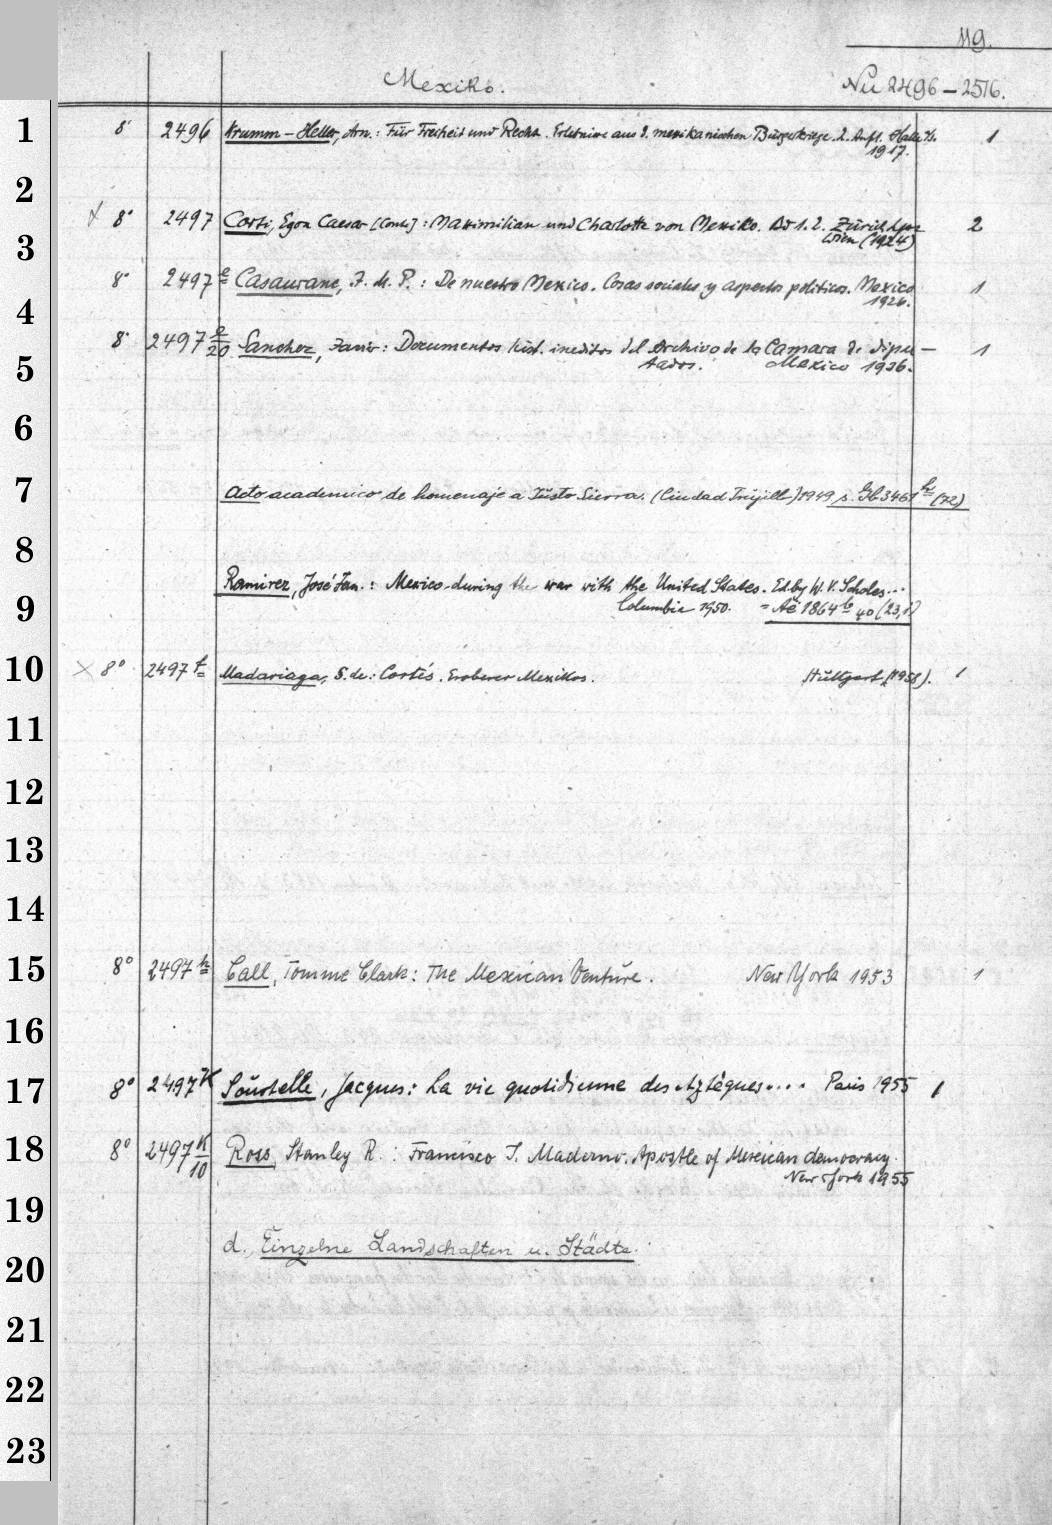 119.
Mexiko. Nu 2496-2516.
1 8° 2496 Krumm-Heller, Arn.: Für Freiheit und Recht. Erlebnisse aus d. mexikanischen Bürgerkriege. 2. Aufl. Halle 1
1917.
2
8° 2497 Corti, Egon Caesar [Conte]: Maximilian und Charlotte von Mexiko. Bd 1. 2. Zürich 2
3 Wien (1924)
8° 2497 e Casaurane, J. M. P.: De nuestro Mexico. Cosas sociales y aspectos politicos. Mexico 1
4 1926.
8° 2497 e/20 Sanchez, Xavir: Documentos hist. ineditos del Archivo de la Camara de dipu- 1
5 tados. Mexico 1936.
6
7 Acto academico de homenaje a Justo Sierra. (Ciudad Trujillo) 1949 s. 3461 h (72)
8
Ramirez, José Fern.: Mexico during the war with the United States. Ed. by W. V. Scholes...
9 Columbia 1950. = Ae 1864 40 (23,1)
10 × 8° 2497 f Madariaga, S. de: Cortés. Eroberer Mexikos. Stuttgart (1956). 1
11
12
13
14
15 8° 2497 h Call, Tomme Clark: The Mexican Venture. New York 1953 1
16
17 8° 2497 K Soustelle, Jacques: La vie quotidienne des Aztèques.... Paris 1955 1
18 8° 2497 K/10 Ross, Stanley R.: Francisco I. Maderno. Apostle of Mexican democracy.
New York 1955
19
d. Einzelne Landschaften u. Städte.
20
21
22
23